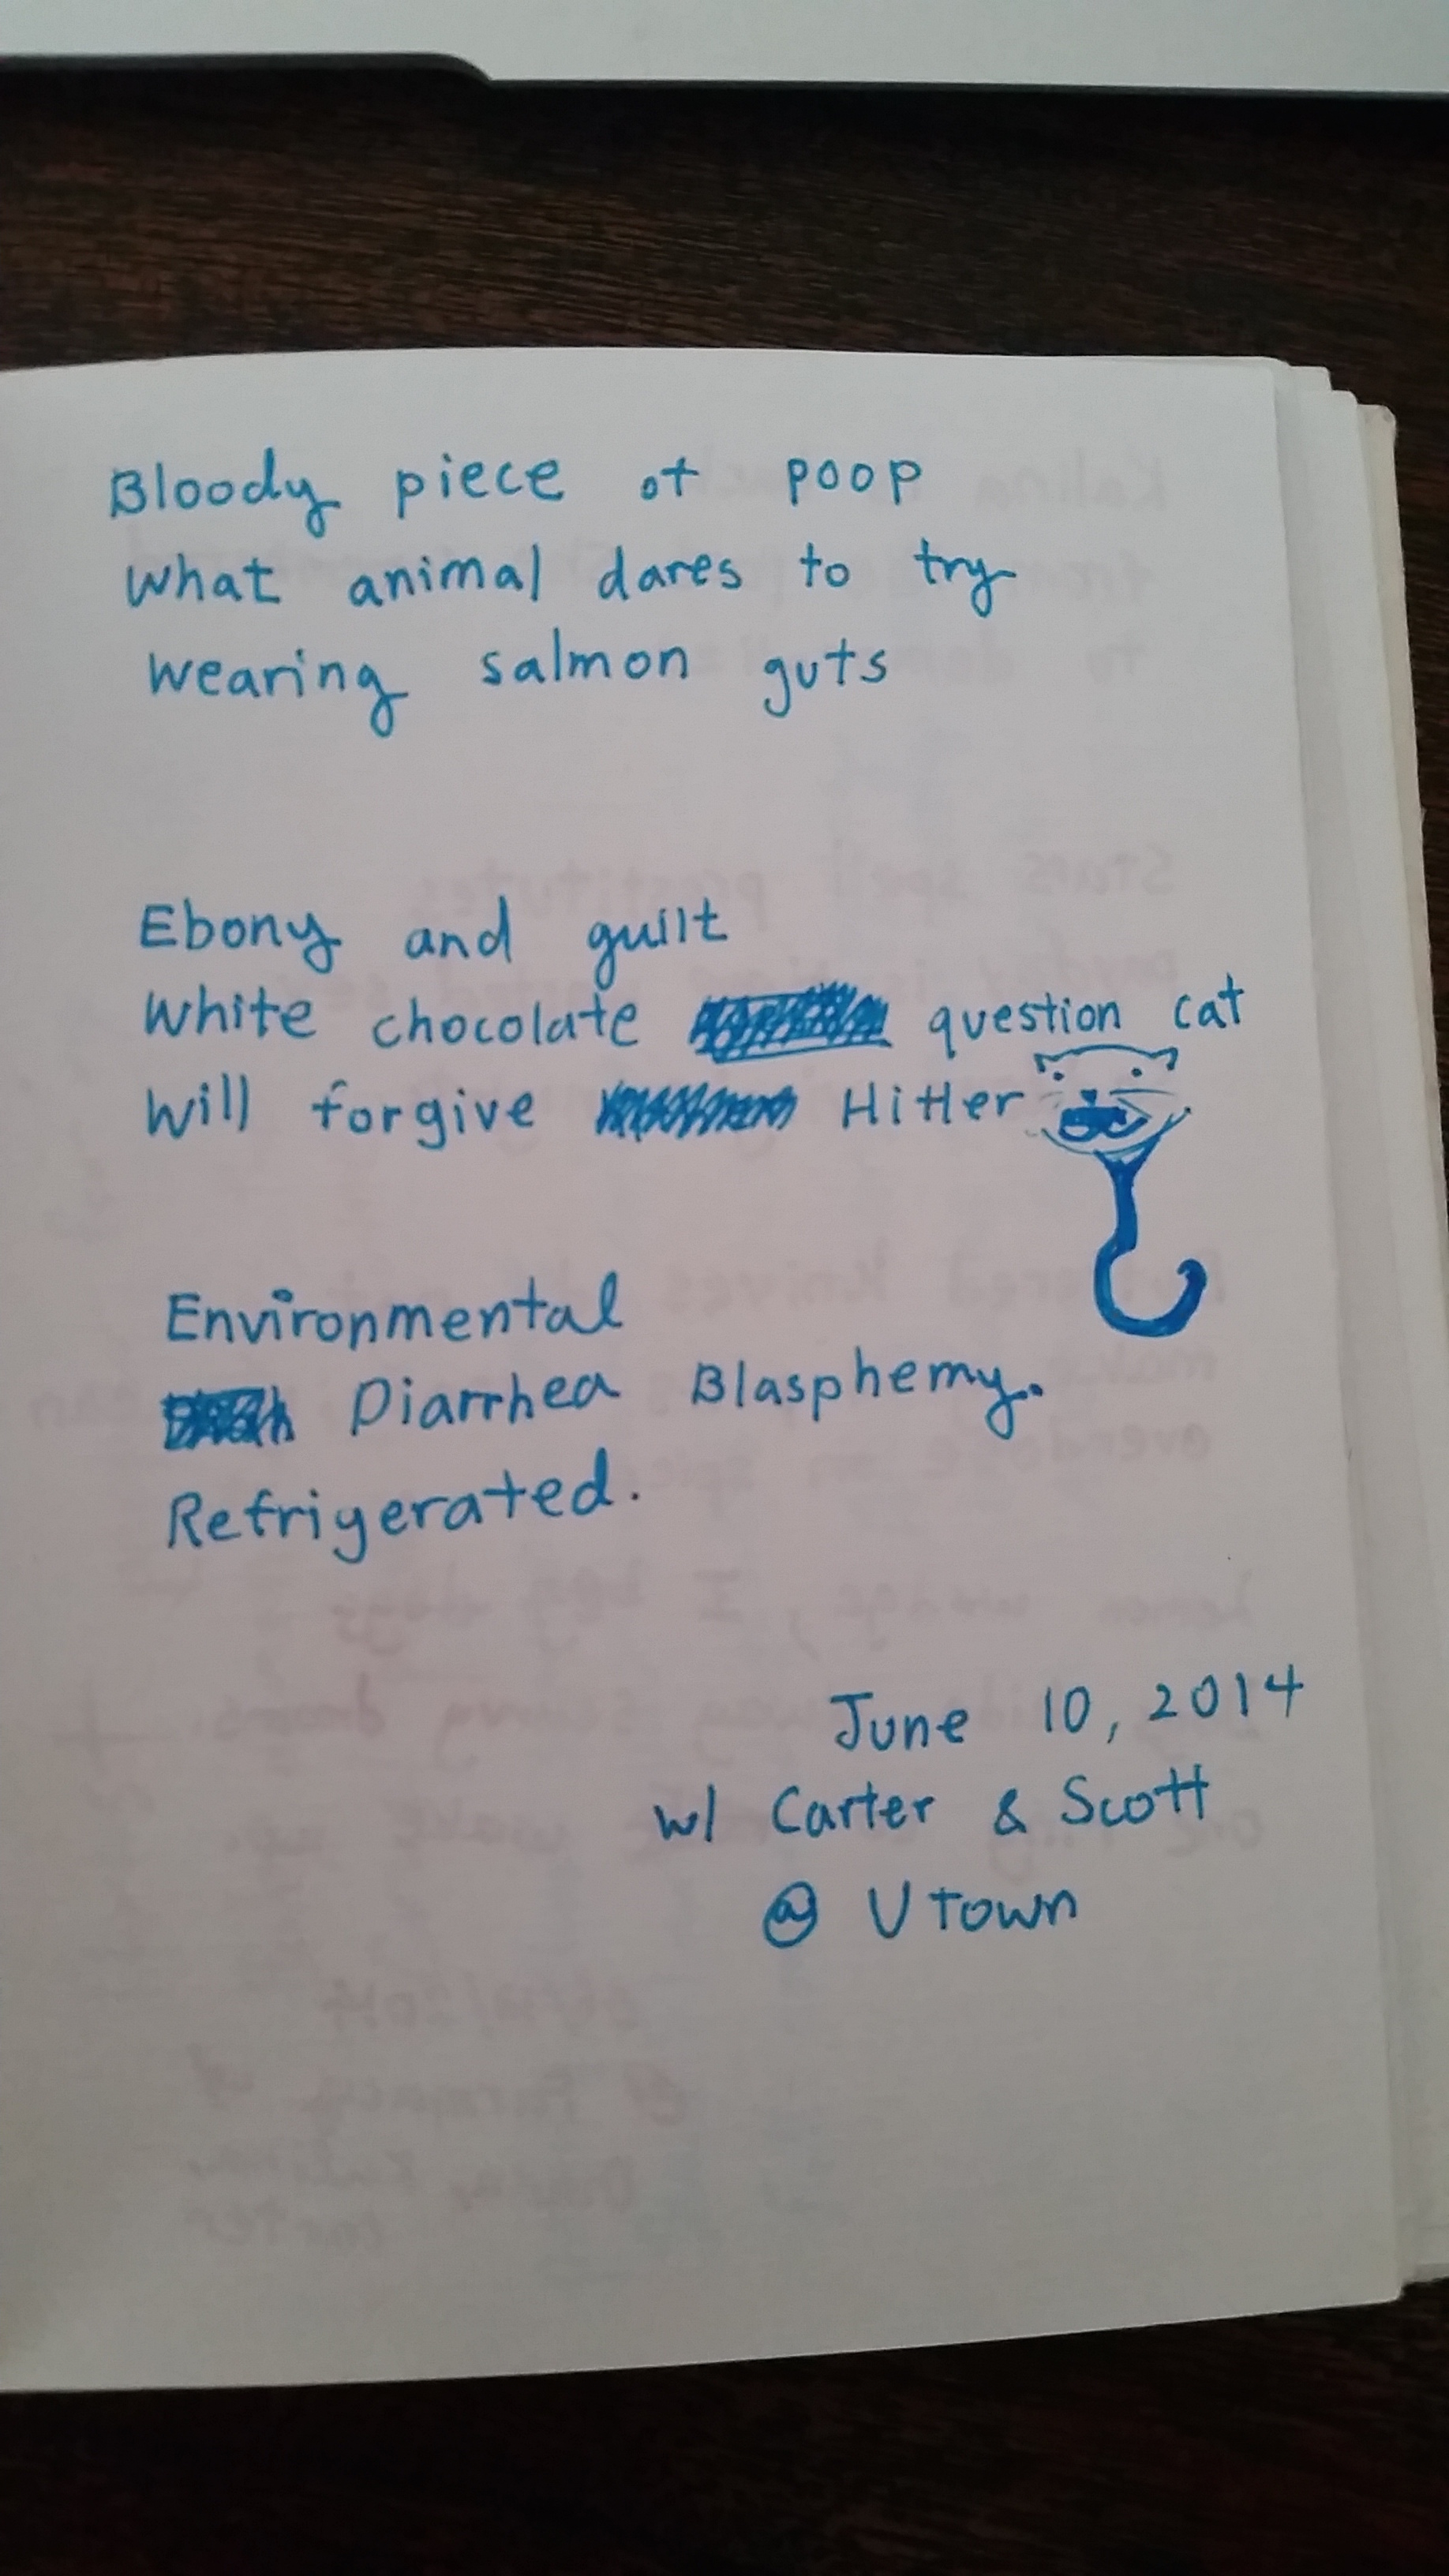 Bloody piece of poop
What animal dares to try
Wearing salmon guts
Ebony and guilt
White chocolate question cat
Will forgive Hitler
Environmental
Diarrhea Blasphemy.
Refrigerated.
June 10, 2014
w/ Carter & Scott
@ U Town